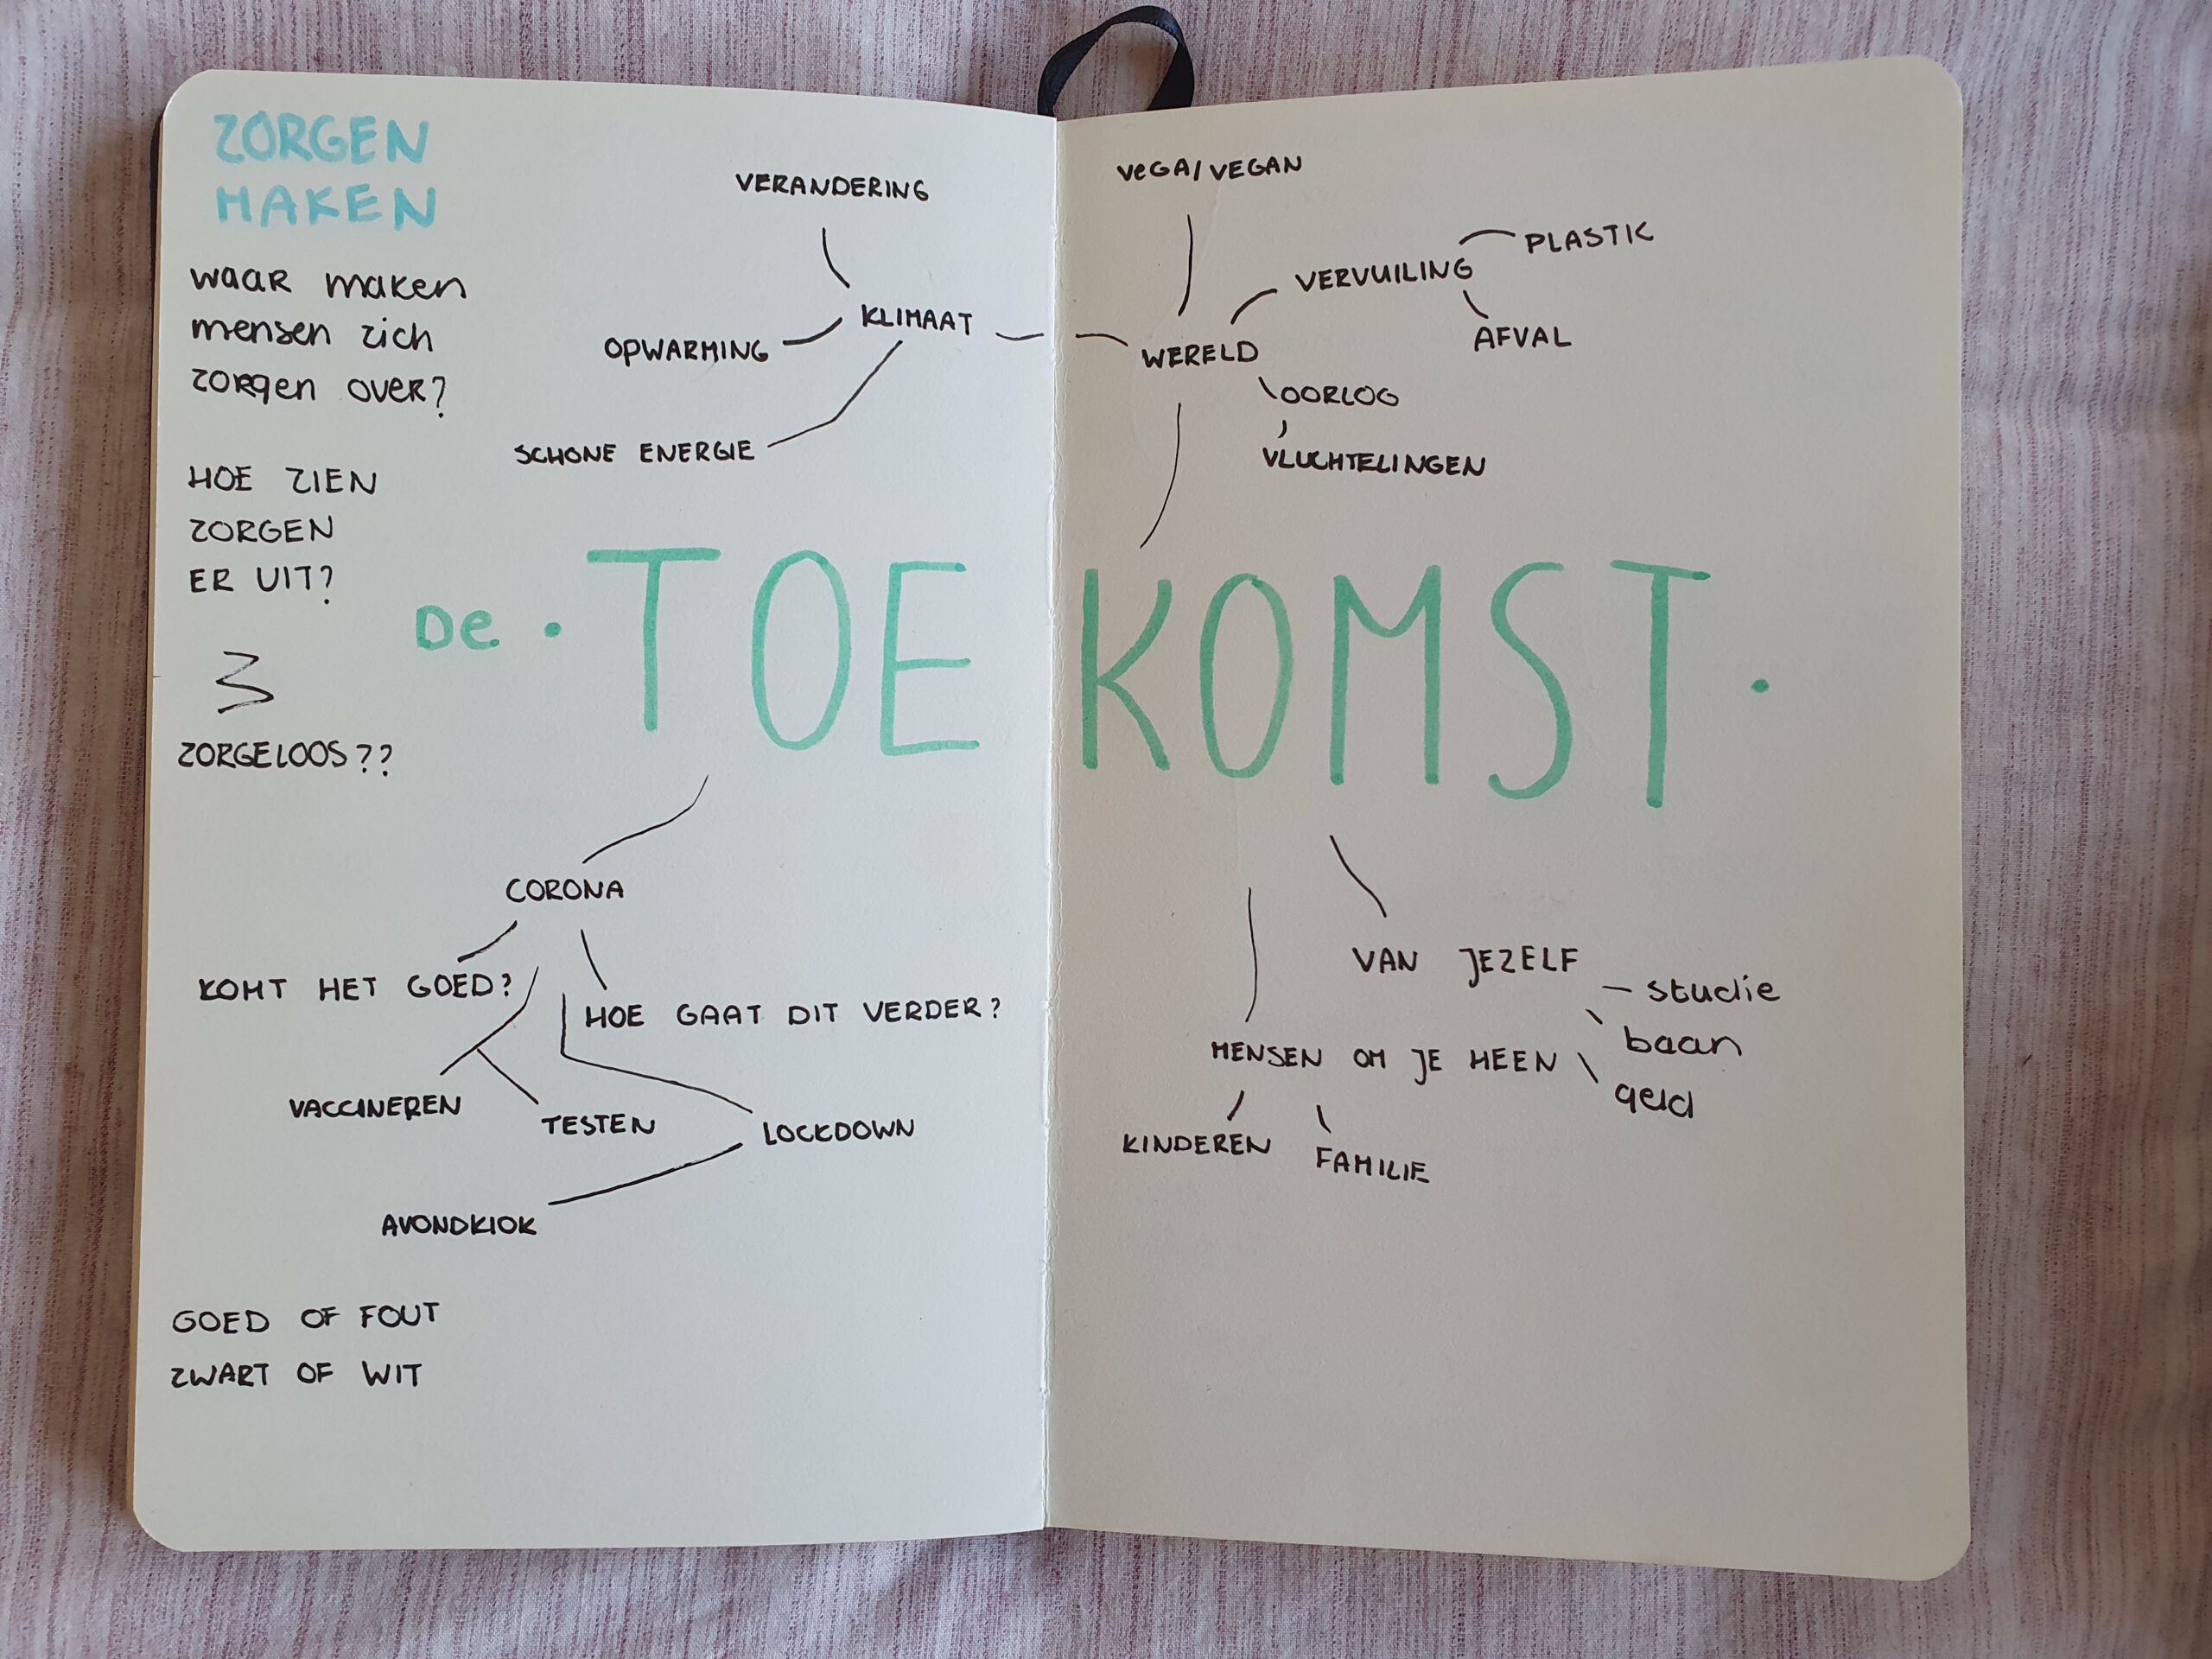 ZORGEN
MAKEN
waar maken
mensen zich
zorgen over?
HOE ZIEN
ZORGEN
ER UIT?
ZORGELOOS??
VERANDERING
KLIMAAT
OPWARMING
SCHONE ENERGIE
VeGA/VEGAN
PLASTIC
VERVUILING
AFVAL
WERELD
OORLOG
VLUCHTELINGEN
De · TOEKOMST ·
CORONA
KOMT HET GOED?
HOE GAAT DIT VERDER?
VACCINEREN
TESTEN
LOCKDOWN
AVONDKLOK
GOED OF FOUT
ZWART OF WIT
VAN JEZELF
studie
baan
geld
MENSEN OM JE HEEN
KINDEREN
FAMILIE